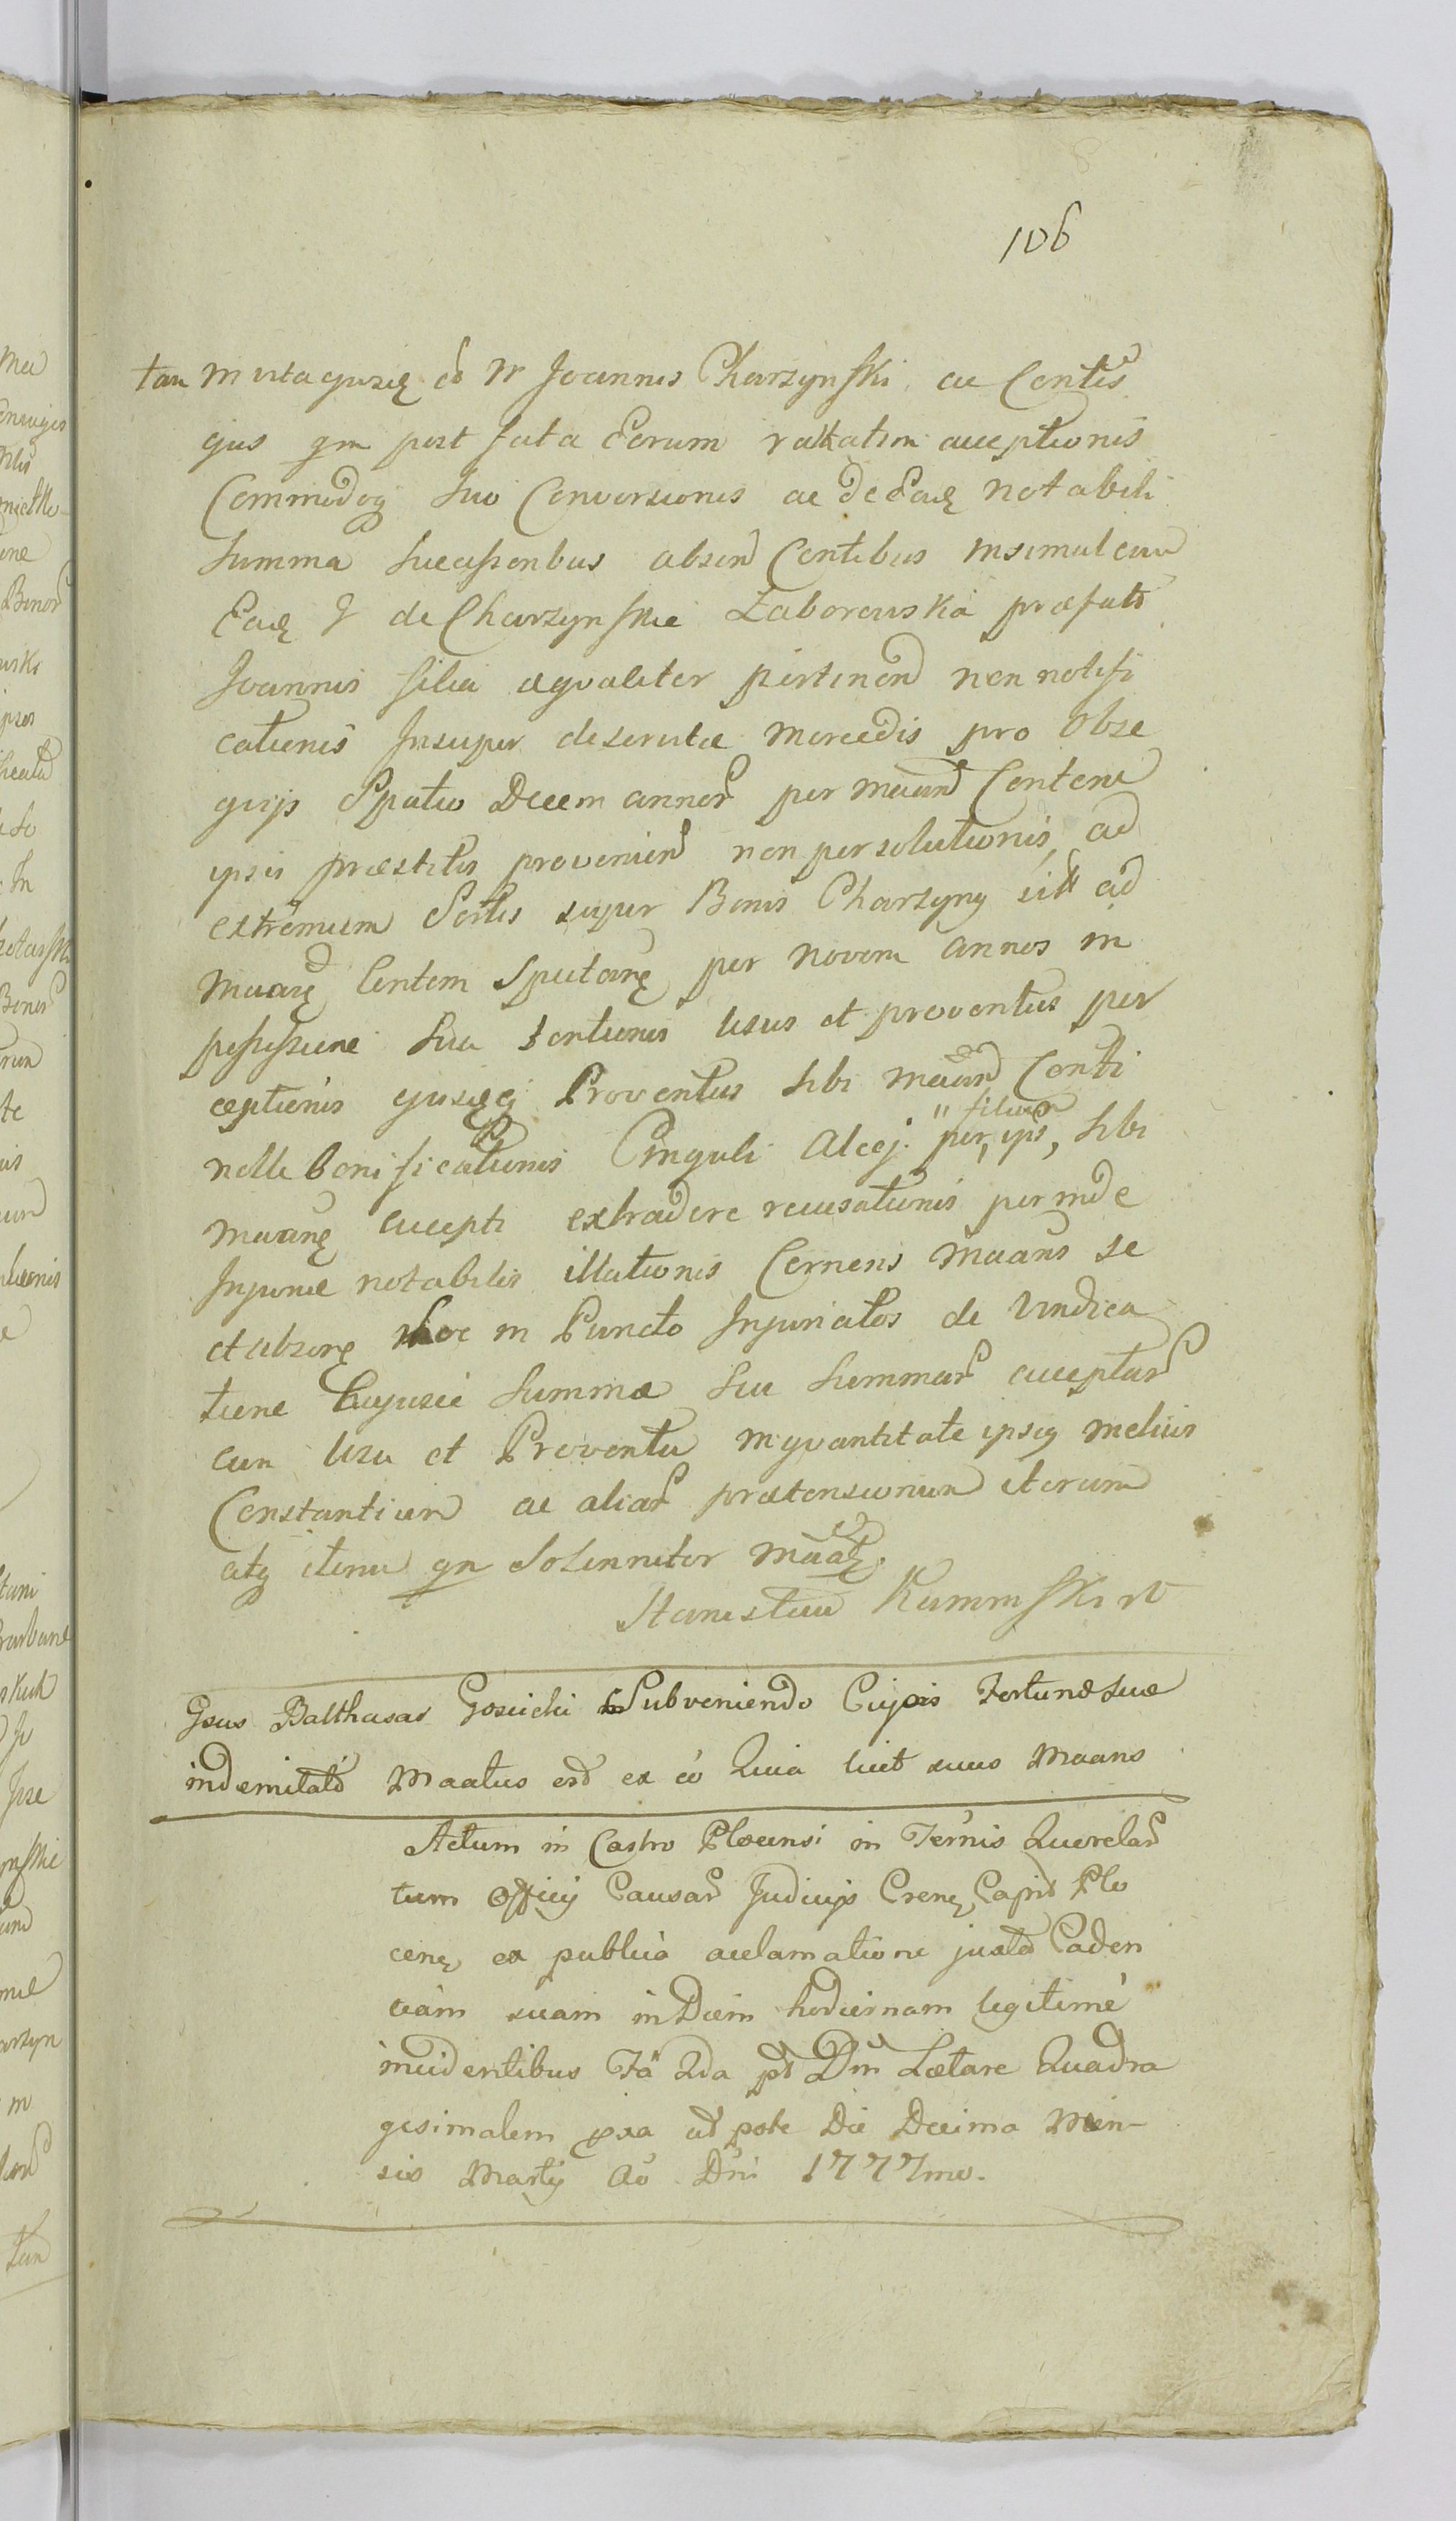 106
tam in vita ejusdę eđ M Joannis Charzynski ac Contis
ejus qm post fata Eorum rattatim acceptionis
Commodoq suo Conversionis ac de Eadę notabili
Summa Successoribus absend Contibus insimul cum
Eadę G de Charzynskie Zaborowska præfati
Joannis filia æqualiter pertinend non notifi
cationis Insuper deservitæ mercedis pro Obse
quijs Spatio Decem annor per maand Contem
ipsis præstitis provenien non persolutionis, ad
extremum Sortis super Bonis Charzyny sitt ad
maanę Contem Spectanę per novem annos in
possessione sua tentionis usus et proventus per
ceptionis ejusdęq Proventus sibi maand Conti
nolle bonificationis Cinguli Alcej. per, ips, sibi
" filium
maanę accepti extradere recusationis perinde
Injuriæ notabilis illationis Cernens maans se
et absenę hoc in Puncto Injuriatos de Vindica
tione hujusce Summæ seu Summar acceptar
cum Usu et Proventu in quantitate ipsis melius
Constantien ac aliar prætensionum iterum
atq iterum qn Solenniter maatę.
Stanislaus Kaminski
Gsus Balthasar Gosicki Subveniendo Cujvis Fortunæ suæ
indemitati Maatus est ex eo Quia licet suus Maans
Actum in Castro Plocensi in Terńis Querelar
tum Officij Causar Judicijs Crenę Capit Plo
cenę ex publica aclamatione juxta Caden
ciam suam in Diem hodiernam legitime
incidentibus Fa 2da pt Dm Lætare Quadra
gesimalem pxa ut pote Die Decima Men-
sis Martij Ao Dni 1777mo.